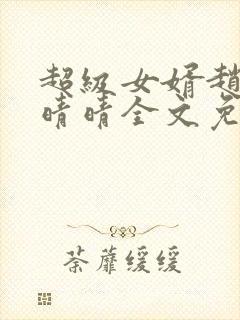 超级女婿趙
晴晴全文免
荼蘼缓缓